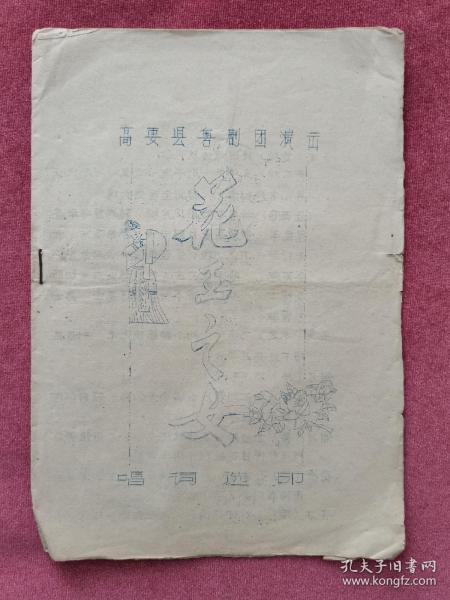 高要县粤剧团演出
花王之女
唱词选印
孔夫子旧书网
www.kongfz.com